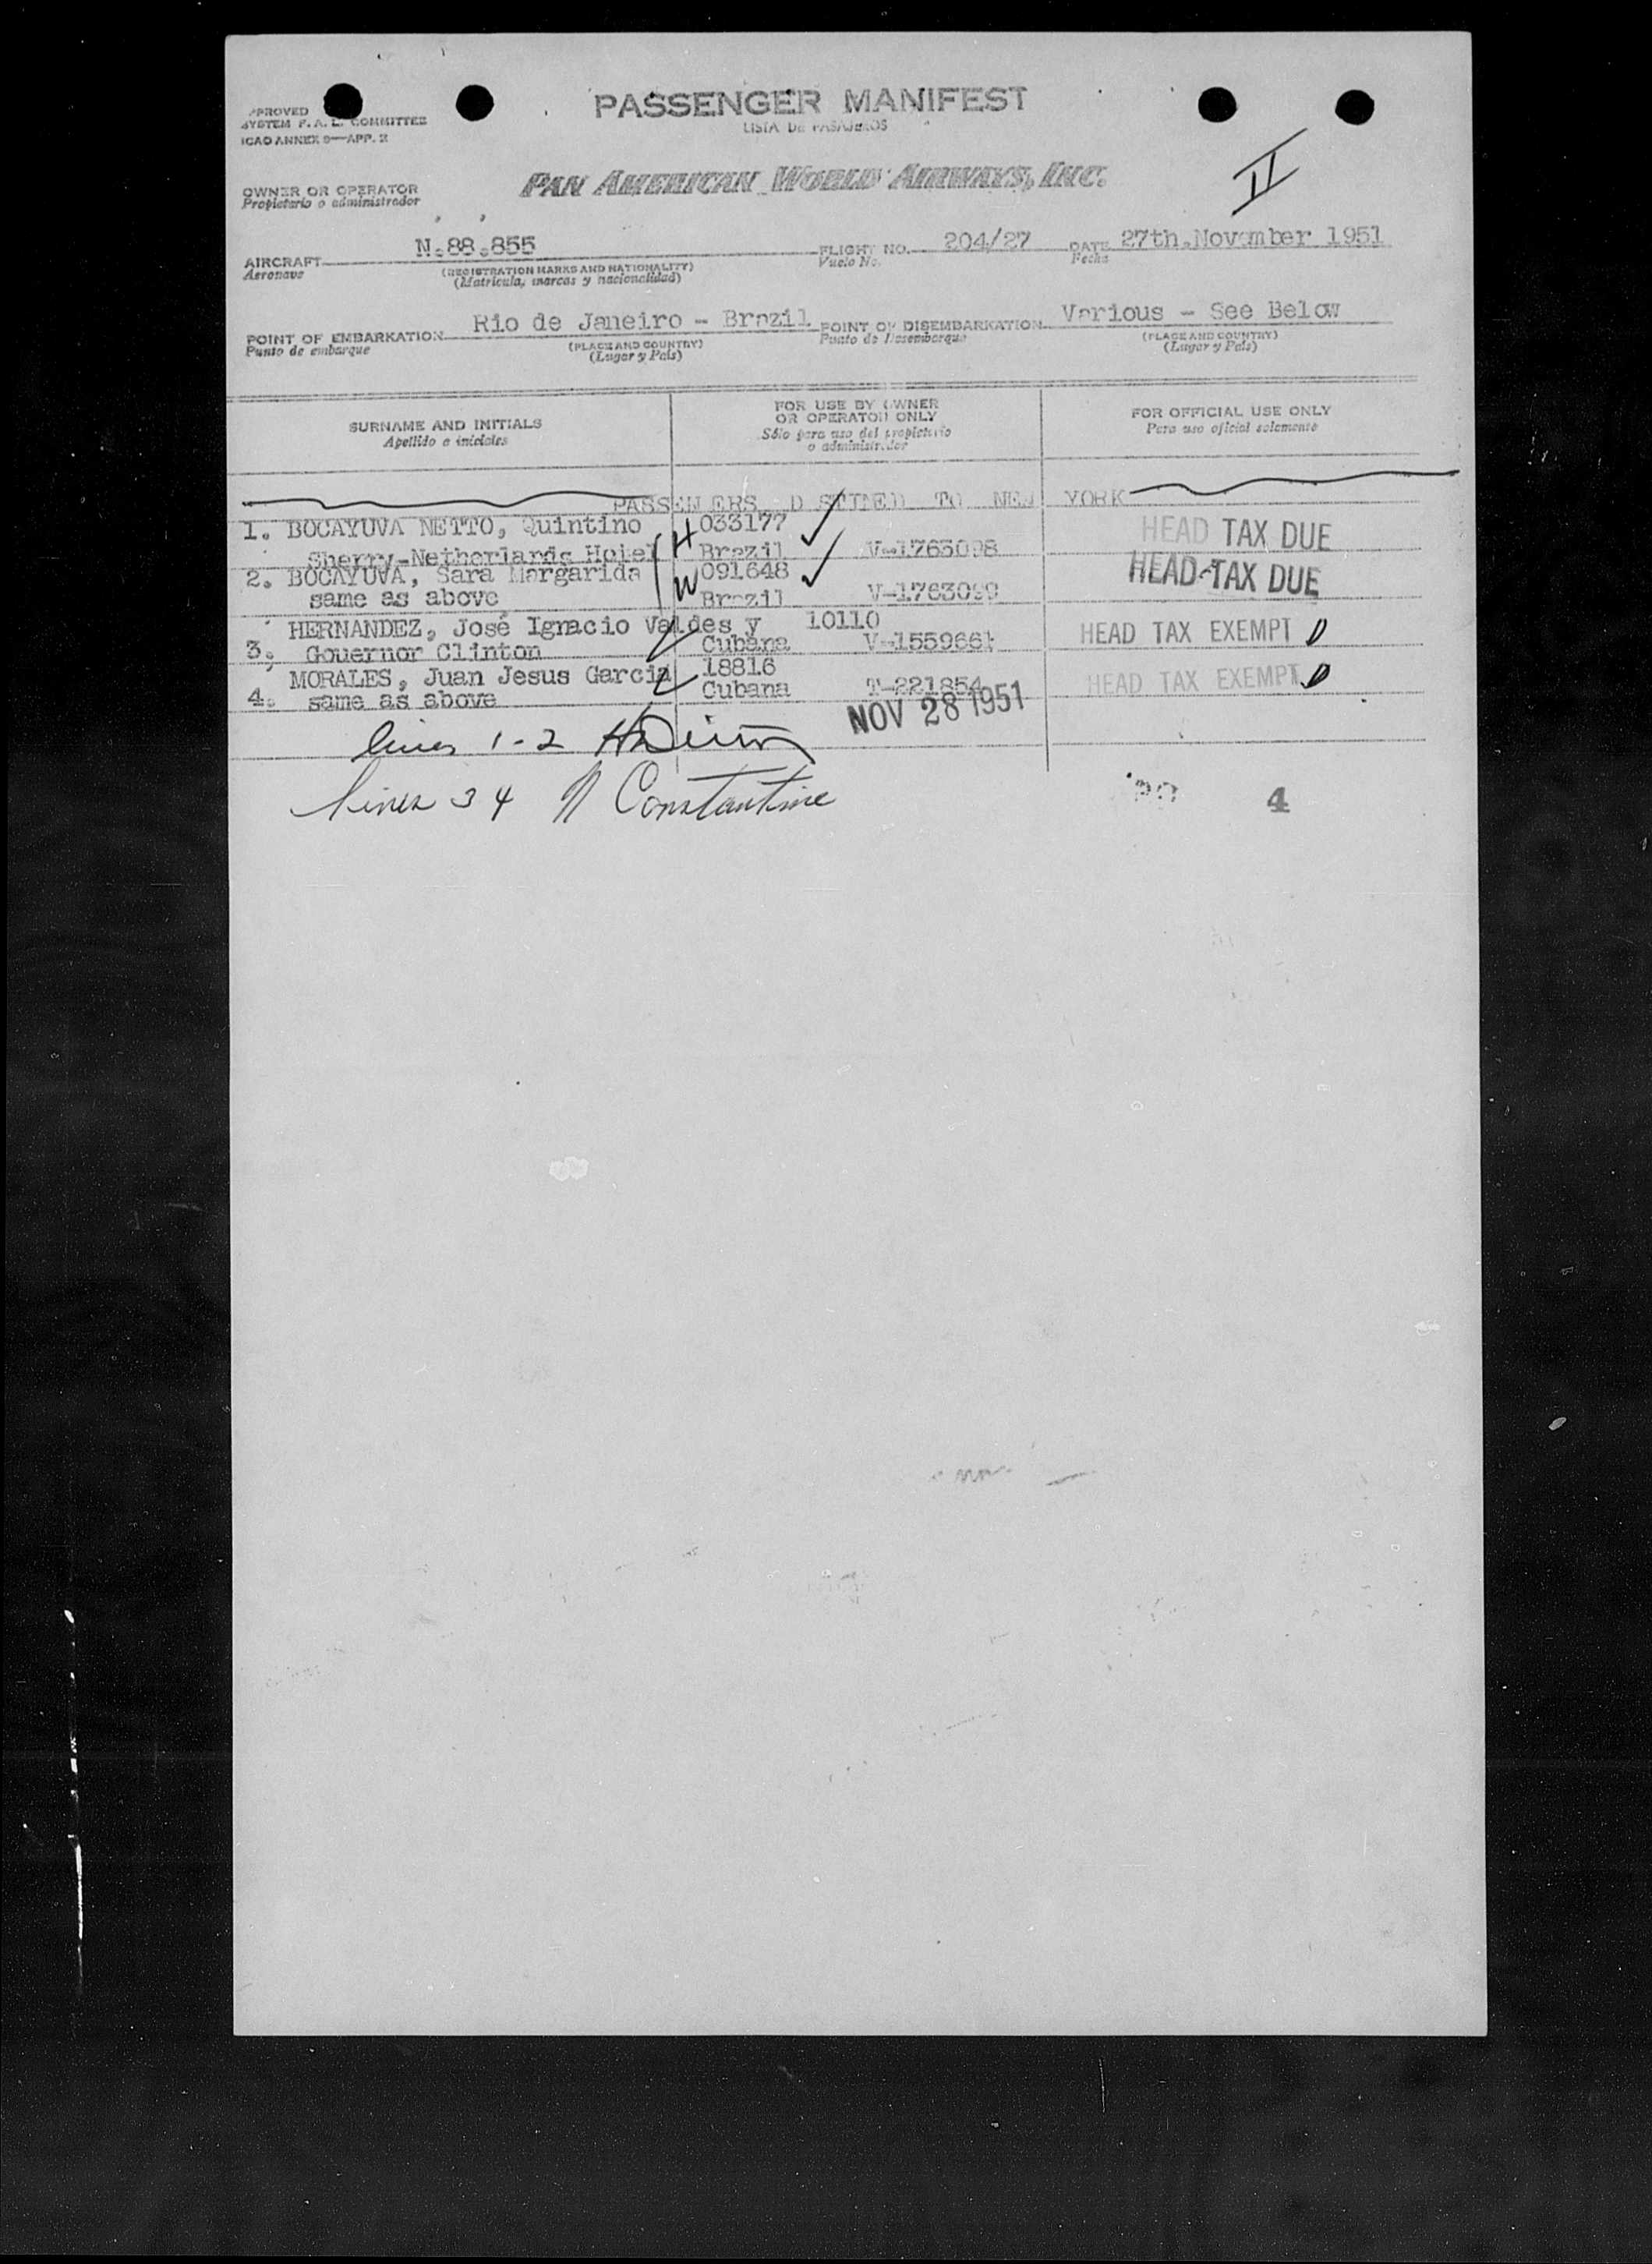 PASSENGER MANIFEST
LISTA DE PASAJEROS
APPROVED
SYSTEM F. A. L. COMMITTEE
ICAO ANNEX 9—APP. 2
II
OWNER OR OPERATOR
Propietario o administrador
PAN AMERICAN WORLD AIRWAYS, INC.
AIRCRAFT N.88.855 FLIGHT NO. 204/27 DATE 27th.November 1951
Aeronave (REGISTRATION MARKS AND NATIONALITY) Vuelo No. Fecha
(Matricula, marcas y nacionalidad)
POINT OF EMBARKATION Rio de Janeiro - Brazil POINT OF DISEMBARKATION Various - See Below
Punto de embarque (PLACE AND COUNTRY) Punto de Desembarque (PLACE AND COUNTRY)
(Lugar y País) (Lugar y País)
SURNAME AND INITIALS
Apellido e iniciales
FOR USE BY OWNER
OR OPERATOR ONLY
Sólo para uso del propietario
o administrador
FOR OFFICIAL USE ONLY
Para uso oficial solamente
PASSENGERS DESTINED TO NEW YORK
1. BOCAYUVA NETTO, Quintino H 033177 HEAD TAX DUE
Sherry-Netherlands Hotel Brazil V-1763098
2. BOCAYUVA, Sara Margarida W 091648 HEAD TAX DUE
same as above Brazil V-1763099
HERNANDEZ, José Ignacio Valdes y 10110 HEAD TAX EXEMPT
3. Gouernor Clinton Cubana V-1559661
MORALES, Juan Jesus Garcia 18816 HEAD TAX EXEMPT
4. same as above Cubana T-221854
NOV 28 1951
lines 1-2
Lines 3 4 N Constantine
4